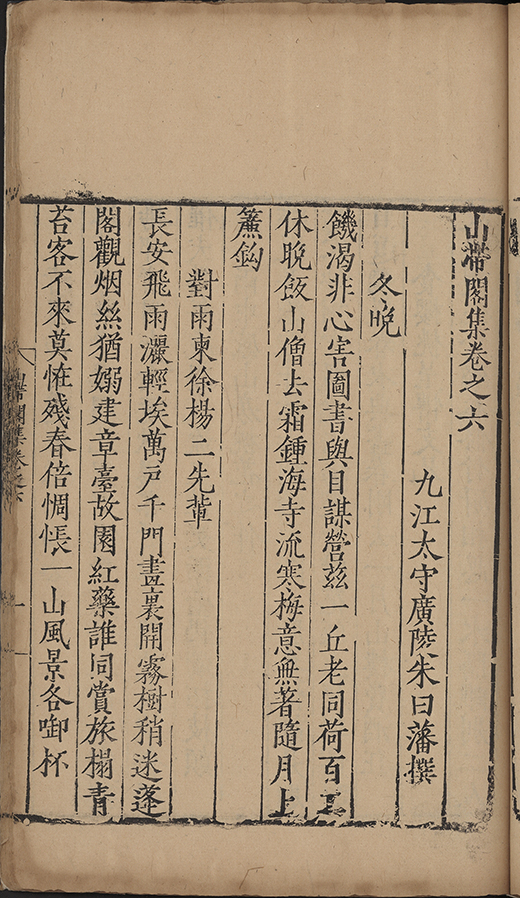 山帶閣集卷之六
九江太守廣陵朱曰藩撰
冬晚
饑渴非心害圖書與目謀營茲一丘老同荷百
休晚飯山僧去霜鍾海寺流寒梅意無著隨月上
簾鈎
對雨柬徐楊二先輩
長安飛雨灑輕埃萬戶千門畫裏開霧樹稍迷蓬
閣觀烟絲猶嫋建章臺故園紅藥誰同賞旅榻青
苔客不來莫恠殘春倍惆悵一山風景各啣杯
山帶閣集卷之六
一